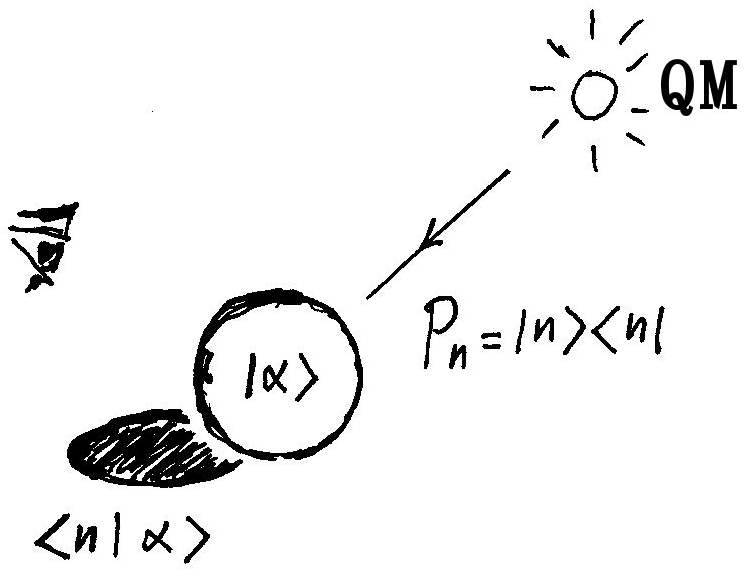 QM
Pₙ = |n><n|
|α>
<n|α>